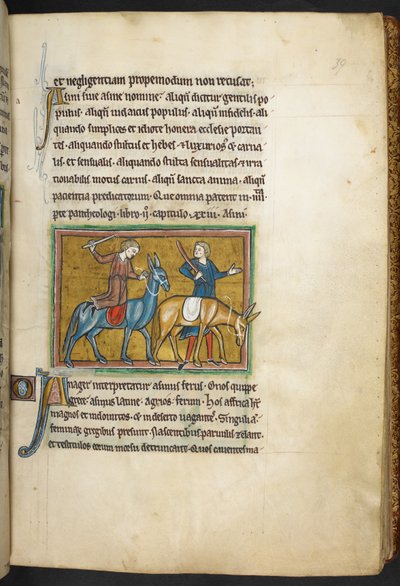 39
et negligentiam propemodum non recusat;
Asini siue asine nomine· aliqn̄ dicitur gentilis po
pulus· aliqn̄ iudaicus populus· aliqn̄ infidelis· ali
quando simplices et idiote honera ecclesie portan
tes· aliquando stultus et hebes· & luxurios᷒ & carna
lis et sensualis· aliquando stulta sensualitas & irra
tionabilis motus carnis· aliqn̄ sancta anima· aliqn̄
paciencia predicatorum· Que omnia patent in iiii
ta
pte pantheologi· libro·ij· capitulo·xxiii· Asini·
Onager interpretatur asinus ferus· Onos quippe
grece· asinus latine· agrios· ferum· Hos affrica hꝫ
magnos et indomitos· & in deserto uagantes· Singuli aū
feminarꝫ gregibus presunt· Nascentibus paruulis zelant·
et testiculos eorum morsu detruncant· Quos cauentes ma